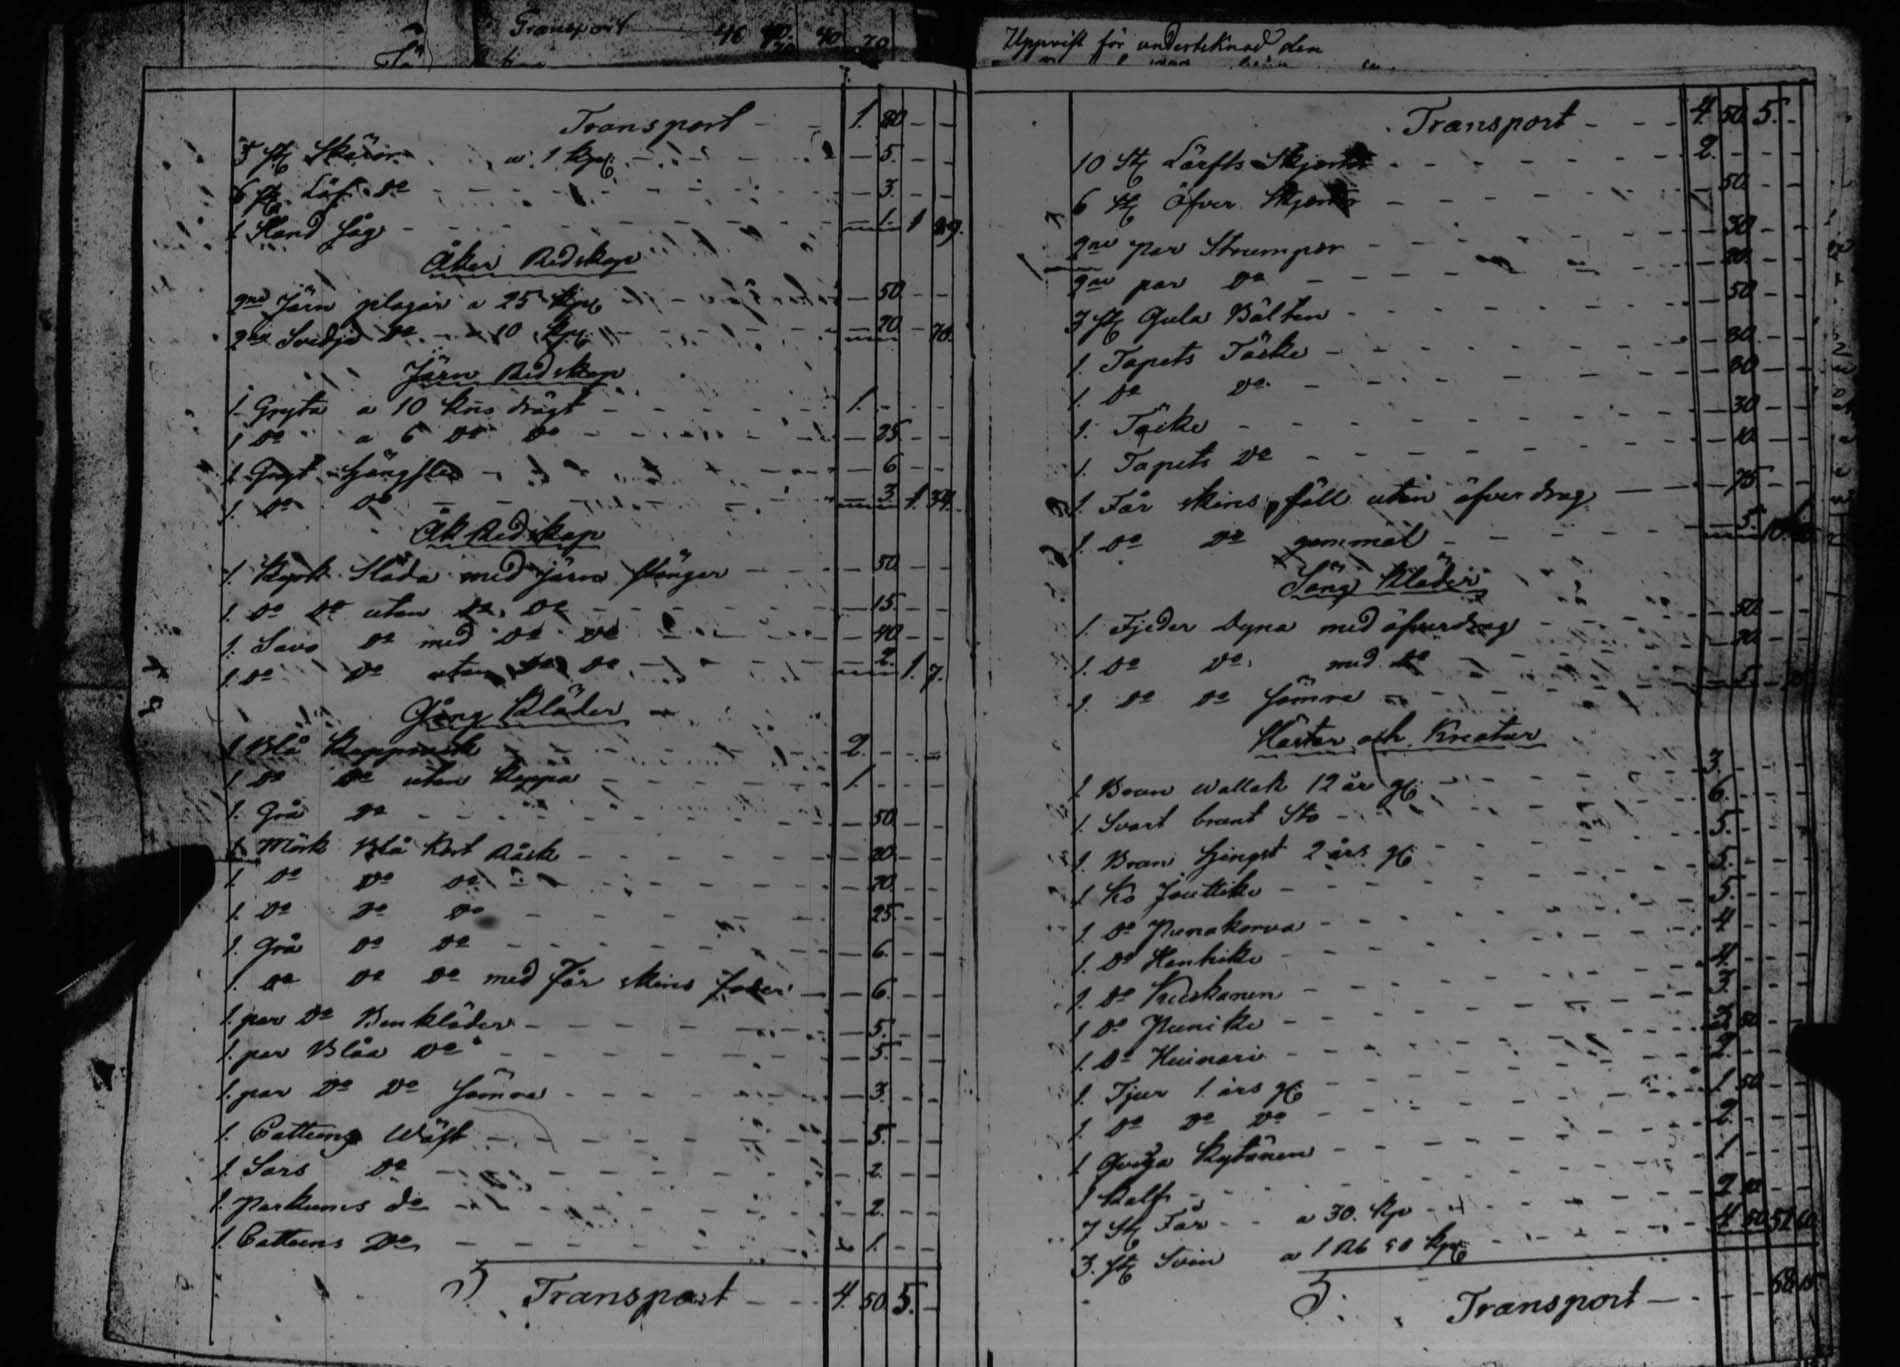 Transport 46 40 70
Uppvist för underteknad den
Transport - - 1. 80 - -
5 st Skäror a 1 kpk - - - 5. - -
6 st Löf Do - - - 3. - -
1 Hand såg - - - 1. 1 89.
Åker Redskap
2ne Järn plogar a 25 kpk - 50 - -
2ne Svedje Do - 10 kpk - - 20 - 70.
Järn Redskap
1. Gryta a 10 kõs drägt - - 1. - - -
1 Do a 6 Do Do - - 25 - -
1 Gryt - - 6 - -
1. Do Do - - 3. 1. 34.
Åk Redskap
1. Kyrk Släda med järn stänger - - 50 - -
1 Do Do utan Do Do - - 15 - -
1. Savo Do med Do Do - - 40 - -
1. Do Do utan Do Do - - 2. 1. 7.
Gång Kläder
1 Blå Kapprock 2. - - -
1 Do Do utan Kappa - - 1. - - -
1. Grå Do - - 50 - -
1. Mörk Blå Kort Råck - - 20 - -
1. Do Do Do - - 20 - -
1. Do Do Do - - 25 - -
1. Grå Do Do - - 6. - -
1. Do Do Do med Får skins foder - - 6. - -
1. par Do Benkläder - - 5. - -
1. par Blåa Do - - 5. - -
1. par Do Do sämre - - 3. - -
1. Cattuns Wäst - - 5. - -
1 Sars Do - - 2. - -
1. Parkums do - - 2. - -
1. Cattuns Do - - 1. - -
Transport - - 4. 50. 5. -
Transport - - - 4. 50 5. -
10 st Lärfts Skjortor - - 2. - - -
6 st Öfver Skjortor - - 50 - -
2ne par Strumpor - - 30 - -
2ne par Do - - 20 - -
3 st Gula Bälten - - 50 - -
1. Tapets Täcke - - 80 - -
1. Do Do - - 30 - -
1. Täcke - - 30 - -
1. Tapets Do - - 10 - -
1. Får skins fäll utan öfverdrag - - 75 - -
1. Do Do gammal - - 5. 10.
Säng Kläder
1. Fjeder Dyna med öfverdrag - - 50 - -
1. Do Do med Do - - 20 - -
1. Do Do sämre - - 5. -
Hästar och Kreatur
1 Brun Wallak 12 år gl 3. - -
1. Svart brunt Sto - - 6. - -
1. Brun Hingst 2 års gl - - 5. - -
1. Ko Jouttike - - 5. - -
1. Do Punakorva - - 5. - -
1. Do Hankike - - 4 - -
1. Do Kuiskanen - - 4. - -
1 Do Punike - - 3. - -
1. Do - - 2 50 - -
1. Tjur 1 års gl - - 2. - -
1. Do Do Do - - 1 50 - -
1 Qviga Kytönen - - 2. - -
1 Kalf - - 1 - -
7 st Får - - a 30. kp - - 2 10 - -
3. st Svin a 1 Rb 50 kpk - - 4. 50 52 60
Transport - - - 68 15